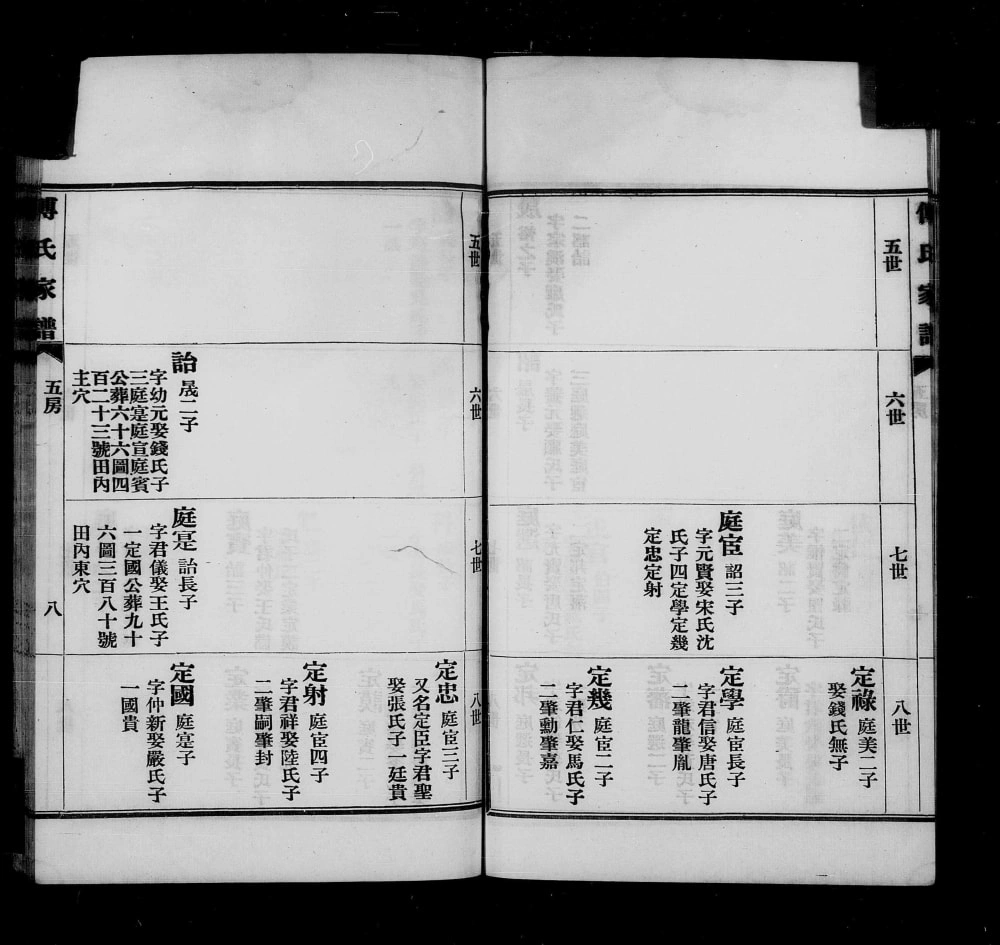 傅氏家譜
五世
六世
七世
庭宦 詔三子
字元賢娶宋氏沈
氏子四定學定幾
定忠定射
八世
定祿 庭美二子
娶錢氏無子
定學 庭宦長子
字君信娶唐氏子
二肇龍肇胤
定幾 庭宦二子
字君仁娶馬氏子
二肇勳肇嘉
五世
六世
詒 晟二子
字幼元娶錢氏子
三庭寔庭宣庭賓
公葬六十六圖四
百二十三號田內
主穴
七世
庭寔 詒長子
字君儀娶王氏子
一定國公葬九十
六圖三百八十號
田內東穴
八世
定忠 庭宦三子
又名定臣字君聖
娶張氏子一廷貴
定射 庭宦四子
字君祥娶陸氏子
二肇嗣肇封
定國 庭寔子
字仲新娶嚴氏子
一國貴
傅氏家譜
五房
八